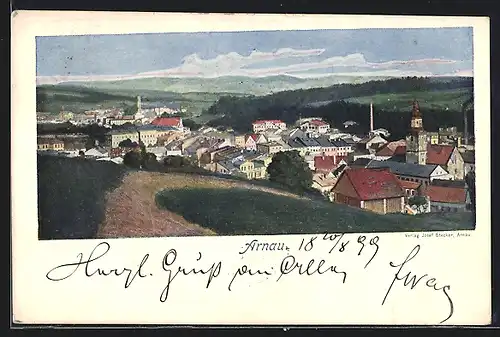 Arnau. 18 20/8 99
Verlag Josef Stecker, Arnau.
Herzl. Gruß an